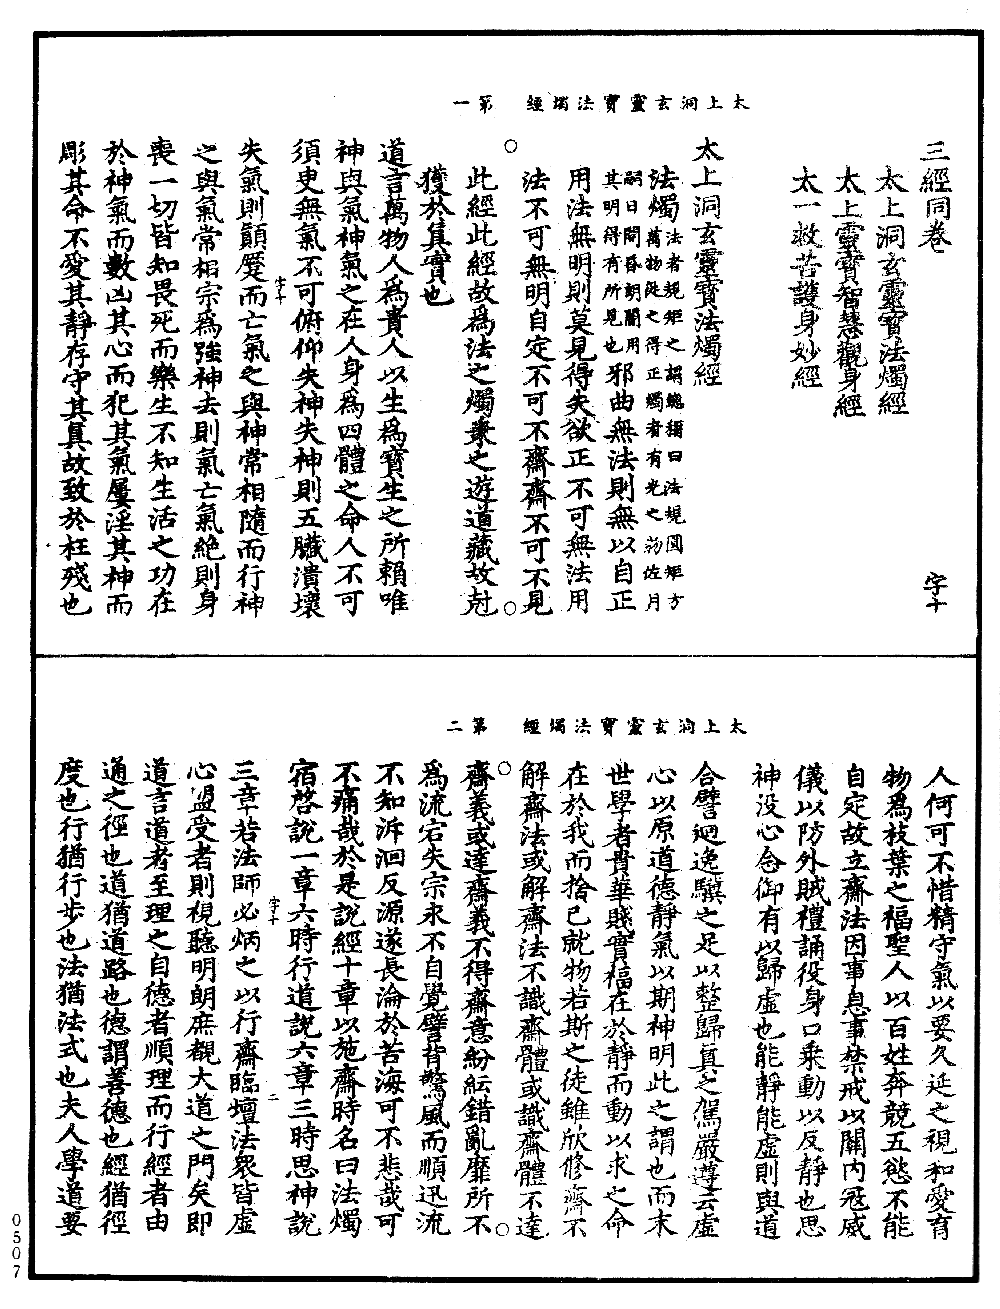 太上洞玄靈寶法燭經　第一
三經同卷　字十
太上洞玄靈寶法燭經
太上靈寶智慧觀身經
太一救苦護身妙經
太上洞玄靈寶法燭經
法燭法者規矩之謂鶡獨曰法規圓矩方
萬物從之得正燭者有光之物佐月
嗣日闇昏朗闇用
其明得有所見也邪曲無法則無以自正
用法無明則莫見得失欲正不可無法用
法不可無明自定不可不齋齋不可不見
此經此經故為法之燭衆之遊道藏故尅
獲於真實也
道言萬物人為貴人以生為寶生之所賴唯
神與氣神氣之在人身為四體之命人不可
須臾無氣不可俯仰失神失神則五臟潰壞
失氣則顛蹷而亡氣之與神常相隨而行神
字十　一
之與氣常相宗為強神去則氣亡氣絶則身
喪一切皆知畏死而樂生不知生活之功在
於神氣而數凶其心而犯其氣屢淫其神而
彫其命不愛其靜存守其真故致於枉殘也
太上洞玄靈寶法燭經　第二
人何可不惜精守氣以要久延之視和愛育
物為枝葉之福聖人以百姓奔競五慾不能
自定故立齋法因事息事禁戒以關内寇威
儀以防外賊禮誦役身口乘動以反靜也思
神役心念御有以歸虛也能靜能虛則與道
合譬迴逸驥之足以整歸真之駕嚴遵云虛
心以原道德靜氣以期神明此之謂也而末
世學者貴華賤實福在於靜而動以求之命
在於我而捨己就物若斯之徒雖欣修齋不
解齋法或解齋法不識齋體或識齋體不達
齋義或達齋義不得齋意紛紜錯亂靡所不
為流宕失宗永不自覺譬背驚風而順迅流
不知泝洄反源遂長淪於苦海可不悲哉可
不痛哉於是說經十章以施齋時名曰法燭
宿啓說一章六時行道說六章三時思神說
字十　二
三章若法師必炳之以行齋臨壇法衆皆虛
心盟受者則視聽明朗庶覩大道之門矣即
道言道者至理之自德者順理而行經者由
通之徑也道猶道路也德謂善德也經猶徑
度也行猶行步也法猶法式也夫人學道要
0507